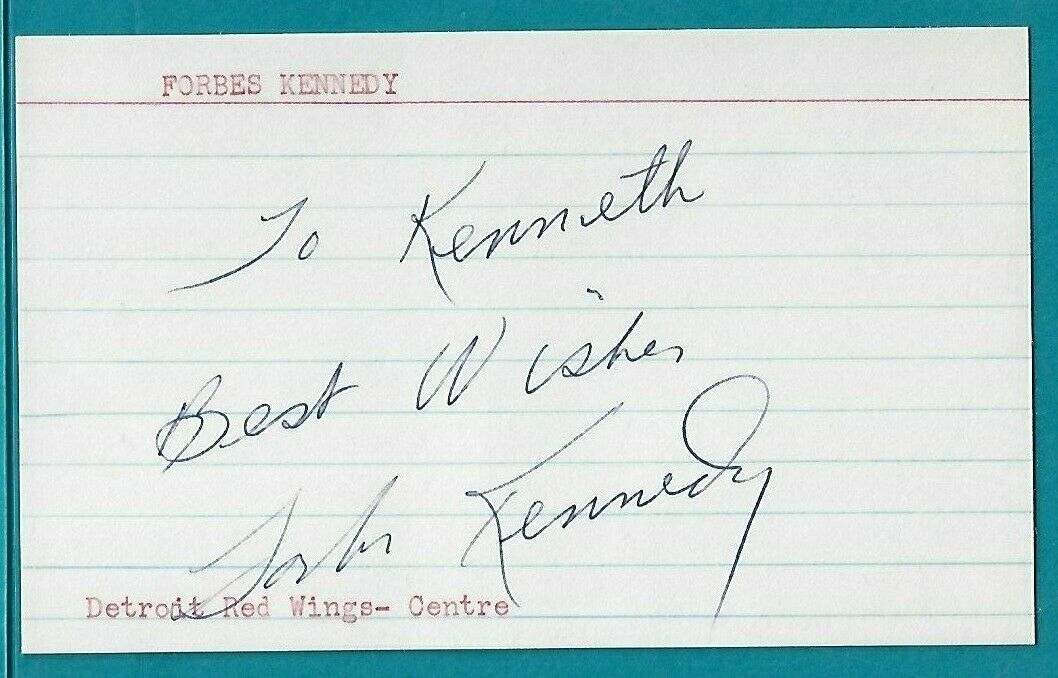 FORBES KENNEDY
To Kenneth
Best Wishes
Forbes Kennedy
Detroit Red Wings- Centre